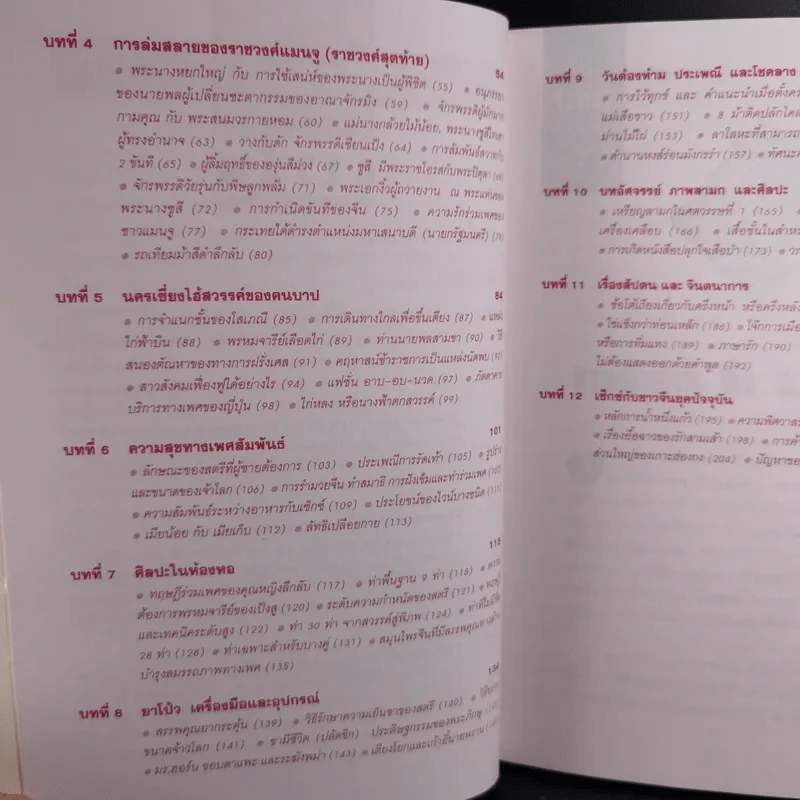 บทที่ 4 การล่มสลายของราชวงศ์แมนจู (ราชวงศ์สุดท้าย) 54
● พระนางหยกใหญ่ กับ การใช้เสน่ห์ของพระนางเป็นผู้พิชิต (55) ● อนุภรรยา
ของนายพลผู้เปลี่ยนชะตากรรมของอาณาจักรมิง (59) ● จักรพรรดิผู้มักมาก
กามคุณ กับ พระสนมวรกายหอม (60) ● แม่นางกล้วยไม้น้อย, พระนางซูสีไทเฮา
ผู้ทรงอำนาจ (63) ● วางกับดัก จักรพรรดิเซียนเฟิง (64) ● การสัมพันธ์สวาทกับ
2 ขันที (65) ● ผู้ลิ้มฤทธิ์ขององุ่นสีม่วง (67) ● ซูสี มีพระราชโอรสกับพระปิตุลา (68)
● จักรพรรดิวัยรุ่นกับพิษลูกพลัม (71) ● พระเอกงิ้วผู้ถวายงาน ณ พระแท่นของ
พระนางซูสี (72) ● การกำเนิดขันทีของจีน (75) ● ความรักร่วมเพศของ
ชาวแมนจู (77) ● กระเทยได้ดำรงตำแหน่งมหาเสนาบดี (นายกรัฐมนตรี) (79)
● รถเทียมม้าสีดำลึกลับ (80)
บทที่ 5 นครเซี่ยงไฮ้สวรรค์ของคนบาป 84
● การจำแนกชั้นของโสเภณี (85) ● การเดินทางไกลเพื่อขึ้นเตียง (87) ● แหล่ง
ไก่ฟ้าบิน (88) ● พรหมจารีย์เลือดไก่ (89) ● ท่านนายพลสามขา (90) ● วิธี
สนองตัณหาของทางการฝรั่งเศส (91) ● คฤหาสน์ข้าราชการเป็นแหล่งนัดพบ (92)
● สาวสังคมเฟื่องฟูได้อย่างไร (94) ● แฟชั่น อาบ-อบ-นวด (97) ● ภัตตาคาร
บริการทางเพศของญี่ปุ่น (98) ● ไก่หลง หรือนางฟ้าตกสวรรค์ (99)
บทที่ 6 ความสุขทางเพศสัมพันธ์ 101
● ลักษณะของสตรีที่ผู้ชายต้องการ (103) ● ประเพณีการรัดเท้า (105) ● รูปร่าง
และขนาดของเจ้าโลก (106) ● การรำมวยจีน ทำสมาธิ การฝังเข็มและท่าร่วมเพศ (107)
● ความสัมพันธ์ระหว่างอาหารกับเซ็กซ์ (109) ● ประโยชน์ของไวน์บางชนิด (111)
● เมียน้อย กับ เมียเก็บ (112) ● ลัทธิเปลือยกาย (113)
บทที่ 7 ศิลปะในห้องหอ 115
● ทฤษฎีร่วมเพศของคุณหญิงลึกลับ (117) ● ท่าพื้นฐาน 9 ท่า (118) ● ความ
ต้องการพรหมจารีย์ของเป็งสู (120) ● ระดับความกำหนัดของสตรี (121) ● ทฤษฎี
และเทคนิคระดับสูง (122) ● ท่า 30 ท่า จากสวรรค์สู่พิภพ (124) ●
28 ท่า (128) ● ท่าเฉพาะสำหรับบางคู่ (131) ● สมุนไพรจีนที่มีสรรพคุณทางด้าน
บำรุงสมรรถภาพทางเพศ (135)
บทที่ 8 ยาโป๊ว เครื่องมือและอุปกรณ์
● สรรพคุณยากระตุ้น (139) ● วิธีรักษาความเย็นชาของสตรี (140) ●
ขนาดจ้าวโลก (141) ● ขามีชีวิต (ปลัดขิก) ประดิษฐกรรมของพระภิกษุ
● มร.ฮอร์น ขอบตาแพะ และระฆังพม่า (143) ● เตียงโยกและเก้าอี้นายพราน
บทที่ 9 วันต้องห้าม ประเพณี และโชคลาง
● การไว้ทุกข์ และ คำแนะนำเมื่อตั้งครร
แม่เสือขาว (151) ● 8 ม้าติดปลักโคล
ม่านไม้ไผ่ (153) ● ลาโลหะที่สามารถ
● ตำนานหงส์ร่อนมังกรรำ (157) ● ทัศนะค
บทที่ 10 บทอัศจรรย์ ภาพลามก และศิลปะ
● เหรียญลามกในศตวรรษที่ 1 (165) ●
เครื่องเคลือบ (166) ● เสื้อชั้นในสำห
● การเกิดหนังสือปลุกใจเสือป่า (173) ● วร
บทที่ 11 เรื่องสัปดน และ จินตนาการ
● ข้อโต้เถียงเกี่ยวกับครึ่งหน้า หรือครึ่งหลัง
● ไข่แข็งกว่าท่อนเหล็ก (186) ● โจ๊กการเมือ
หรือการทิ่มแทง (189) ● ภาษารัก (190)
ไม่ต้องแสดงออกด้วยคำพูด (192)
บทที่ 12 เซ็กซ์กับชาวจีนยุคปัจจุบัน
● หลักการน้ำหนึ่งแก้ว (195) ● ความพิศวาส
● เรื่องอื้อฉาวของรักสามเส้า (198) ● การค้
ส่วนใหญ่ของเกาะฮ่องกง (204) ● ปัญหาขอ